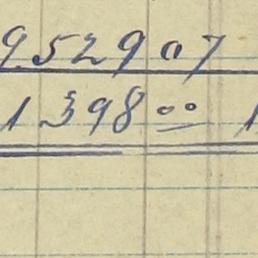 952907
1398 00 1